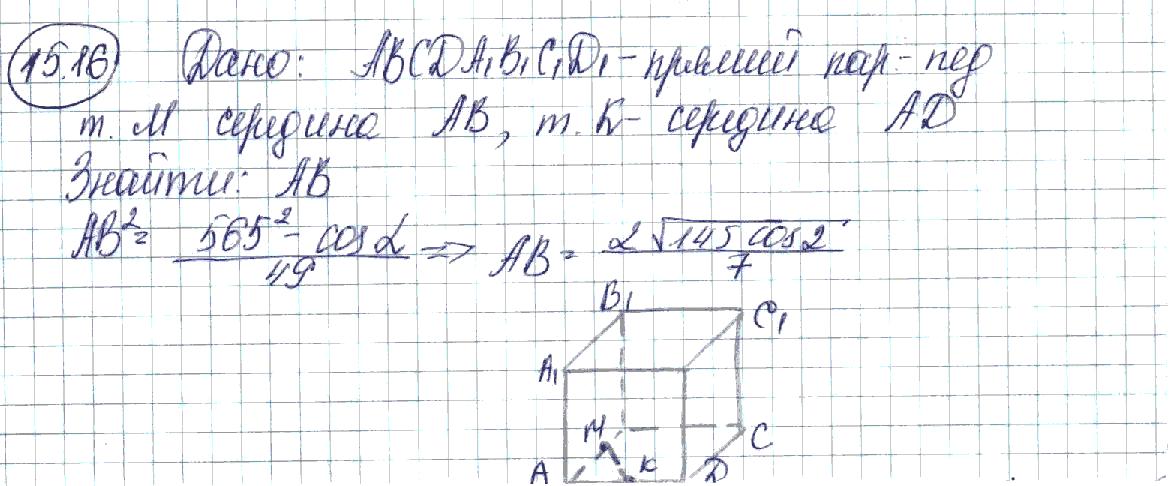 15.16 Дано: ABCDA₁B₁C₁D₁ - прямий пар.-пед
т. М середина AB, т. К - середина AD
Знайти: AB
AB² = 565² - cos α / 49 => AB = 2√145 cos 2 / 7
B₁ C₁
A₁
M C
A K D